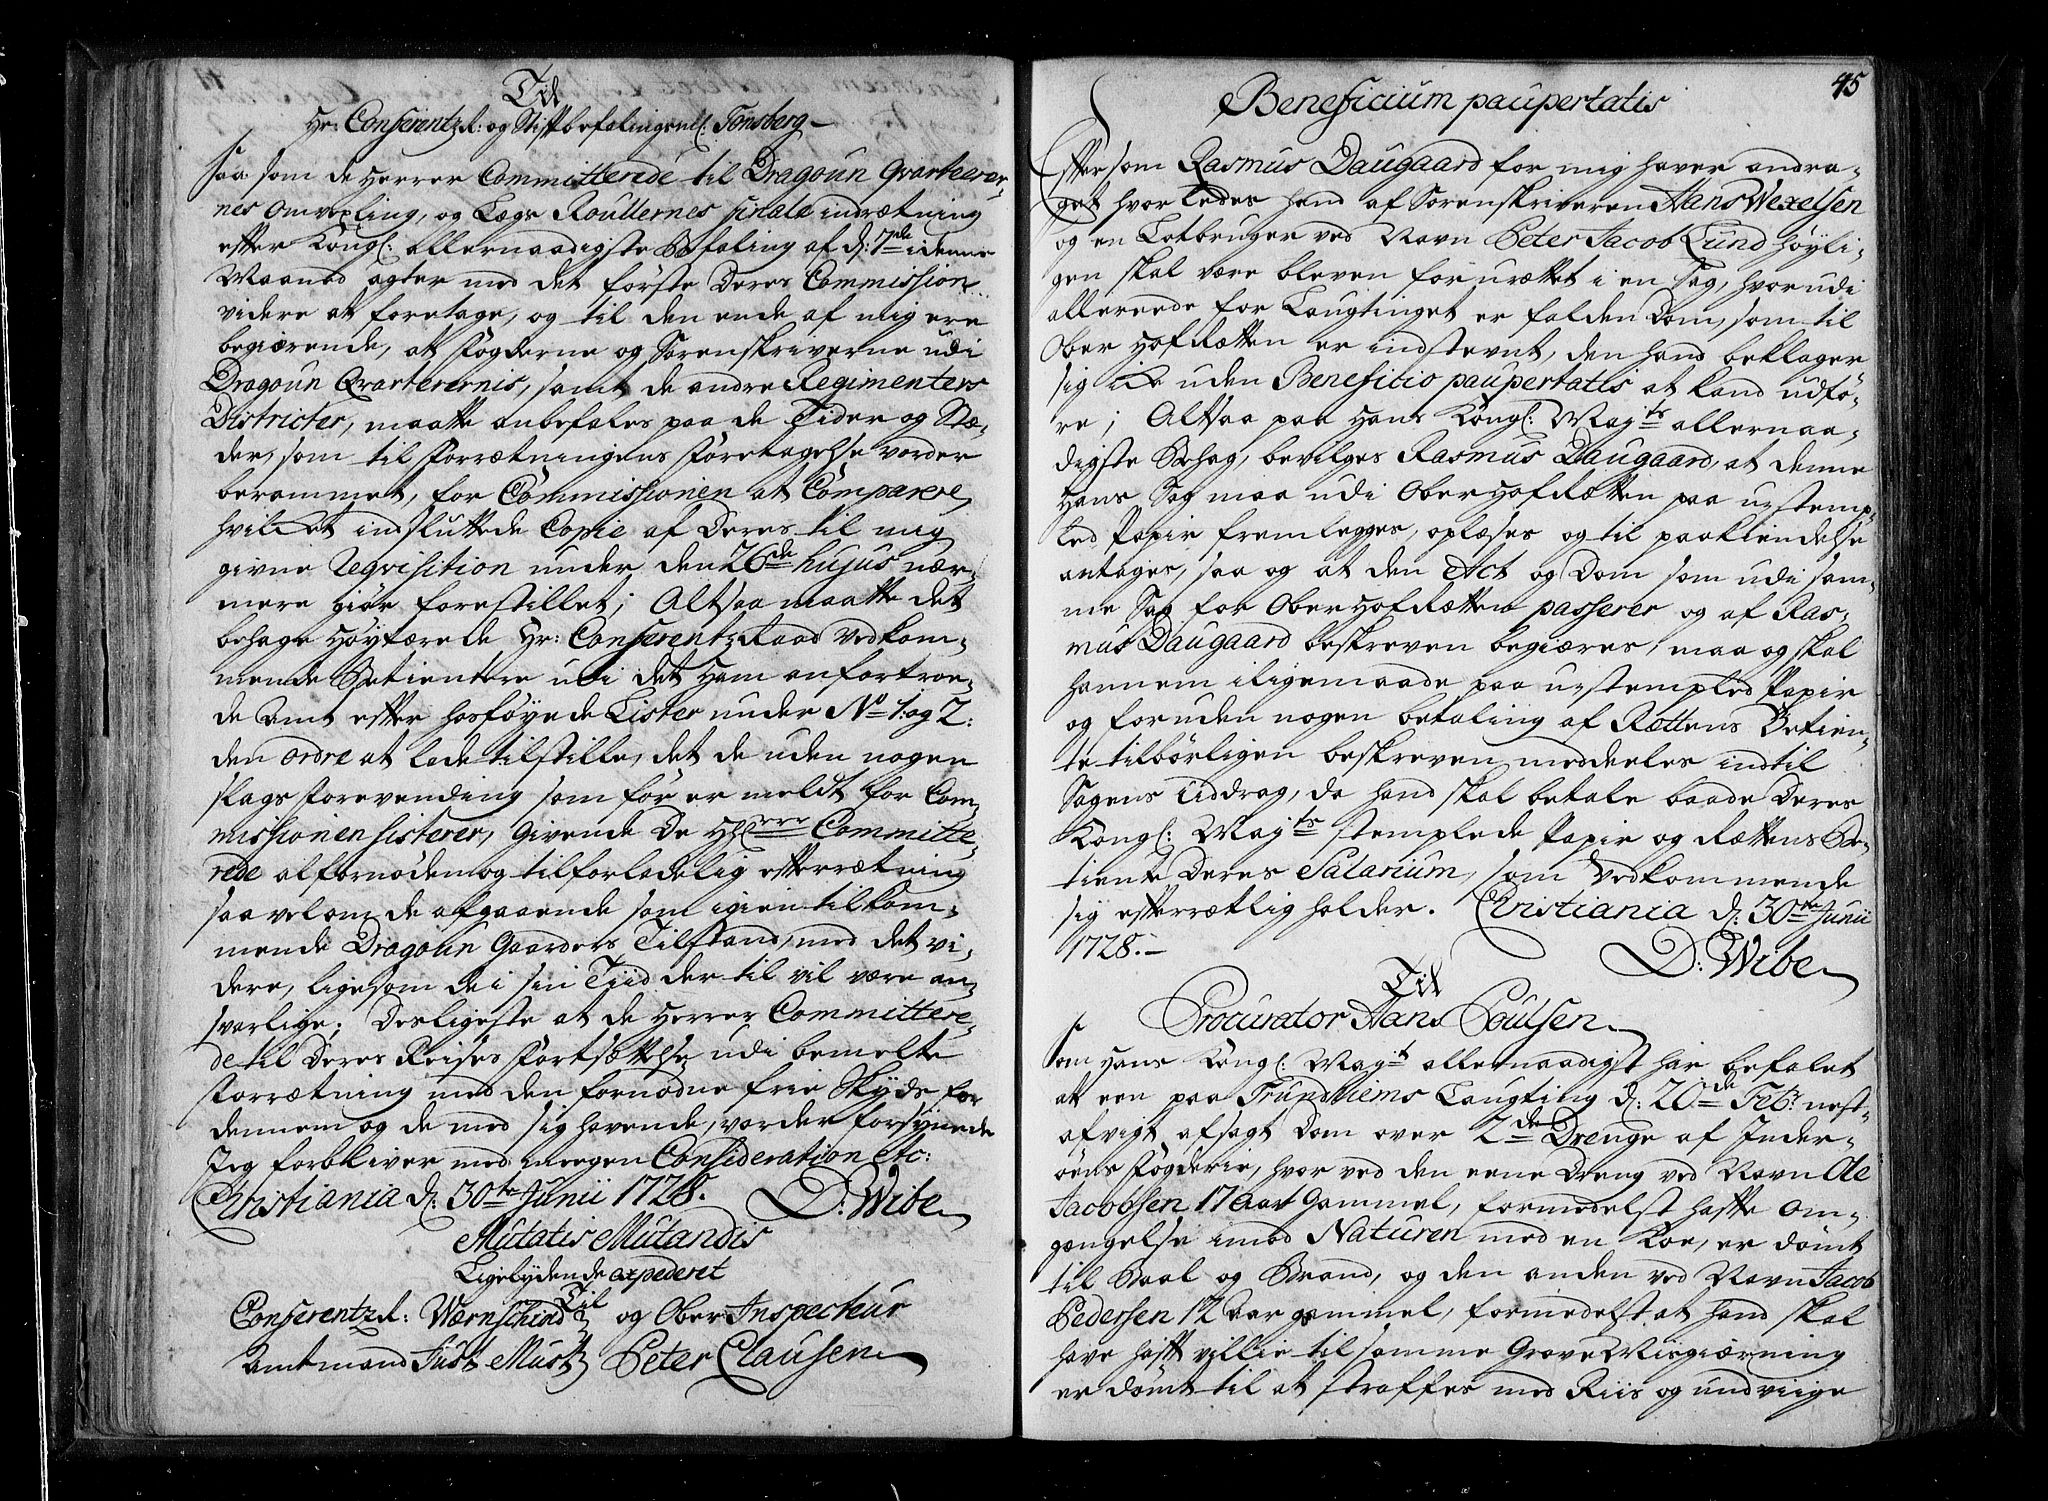 Til
Hr: Conferentzr: og Stiftbefalingsm: Tønsberg
Saa som de Herrer Committerede til Dragoun Qvarteerer-
nes Omvexling, og Lægs Roullernes finale indrætning
efter Kongl: allernaadigste Befaling af d: 7de i denne
Maaned agter med det første Deres Commission
videre at foretage, og til den ende af mig ere
begiærende, at Fogderne og Sorenskriverne udi
Dragoun Qvarterernis, samt de andre Regimenters
Districter, maatte anbefales paa de Tider og Stæ-
der, som til Forrætningens Foretagelse vorder
berammet, for Commissionen at Comparere,
hvilket indsluttede Copie af Deres til mig
givne Reqvisition under den 26de hujus nær-
mere giør forestillet; Altsaa maatte det
behage Høytærede Hr: Conferentz Raad vedkom-
mende Betientere udi det Ham anfortroe-
de Amt efter hosføyede Lister under No 1. og 2:
den ordre at lade tilstille, det de uden nogen
slags Forevending som før er meldt for Com-
missionen sisterer, givende De HHerrer Committe-
rede alfornøden og tilforladelig efterrætning
saa vel om de afgaaende som igien tilkom-
mende Dragoun Gaarders Tilstand, med det vi-
dere, ligesom de i sin Tiid der til vil være an-
svarlige; Desligeste at de Herrer Committere-
de til Deres Reises Fortsættelse udi bemelte
Forrætning med den fornødne frie Skyds for
dennem og de med sig havende, vorder forsynede
Jeg forbliver med megen Consideration etc:
Christiania d: 30te Junii 1728. D: Wibe
Mutatis Mutandis
Ligelydende expederet
Til
Conferentzr: Wærnschiold og Ober Inspecteur
Amtmand Just Must Peter Clausen
45
Beneficium paupertatis
Eftersom Rasmus Daugaard for mig haver andra-
get hvorledes hand af Sorenskriveren Hans Wexelsen
og en Lotbruger ved Navn Peter Jacob Lund høyli-
gen skal være bleven forurættet i en Sag, hvorudi
allereede for Laugtinget er falden Dom, som til
Ober HofRætten er indstevnt, den hand beklager
sig icke uden Beneficio paupertatis at kand udfø-
re; Altsaa paa Hans Kongl: Mayts allernaa-
digste Behag, bevilges Rasmus Daugaard, at denne
Hans Sag maa udi Ober HofRætten paa ustemp-
led Papir fremlegges, oplæses og til paakiendelse
antages, saa og at den Act og Dom som udi sam-
me Sag for Ober HofRætten passerer og af Ras-
mus Daugaard beskreven begiæres, maa og skal
hannem iligemaade paa ustempled Papir
og foruden nogen betaling af Rættens Betien-
te tilbørligen beskreven meddeeles indtil
Sagens Uddrag, da hand skal betale baade Deres
Kongl: Mayts stemplede Papir og Rættens Be-
tiente Deres Salarium, som Vedkommende
sig efterrætlig holder. Christiania d: 30te Junii
1728.
D: Wibe
Til
Procurator Hans Poulsen
Som Hans Kongl: Mayt allernaadigst har befalet
at een paa Trundhiems Laugting d: 20de Febr: nest-
afvigt afsagt Dom over 2de Drenge af Inder-
øens Fogderie, hvor ved den eene Dreng ved Navn Ole
Jacobsen 17 Aar Gammel, formedelst hafte Om-
gengelse imod Naturen med en Koe, er dømt
til Baal og Brand, og den anden ved Navn Jacob
Pedersen 12 Aar gammel, formedelst at hand skal
have haft villie til samme Grove Misgiærning
er dømt til at straffes med Riis og undviige